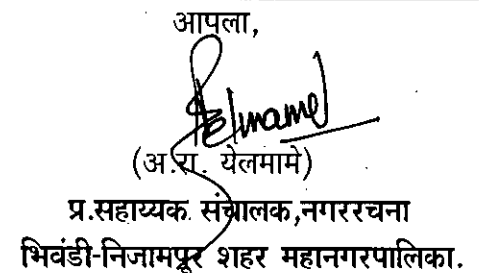 आपला,
(अ.रा. येलमामे)
प्र.सहाय्यक संचालक,नगररचना
भिवंडी-निजामपूर शहर महानगरपालिका.